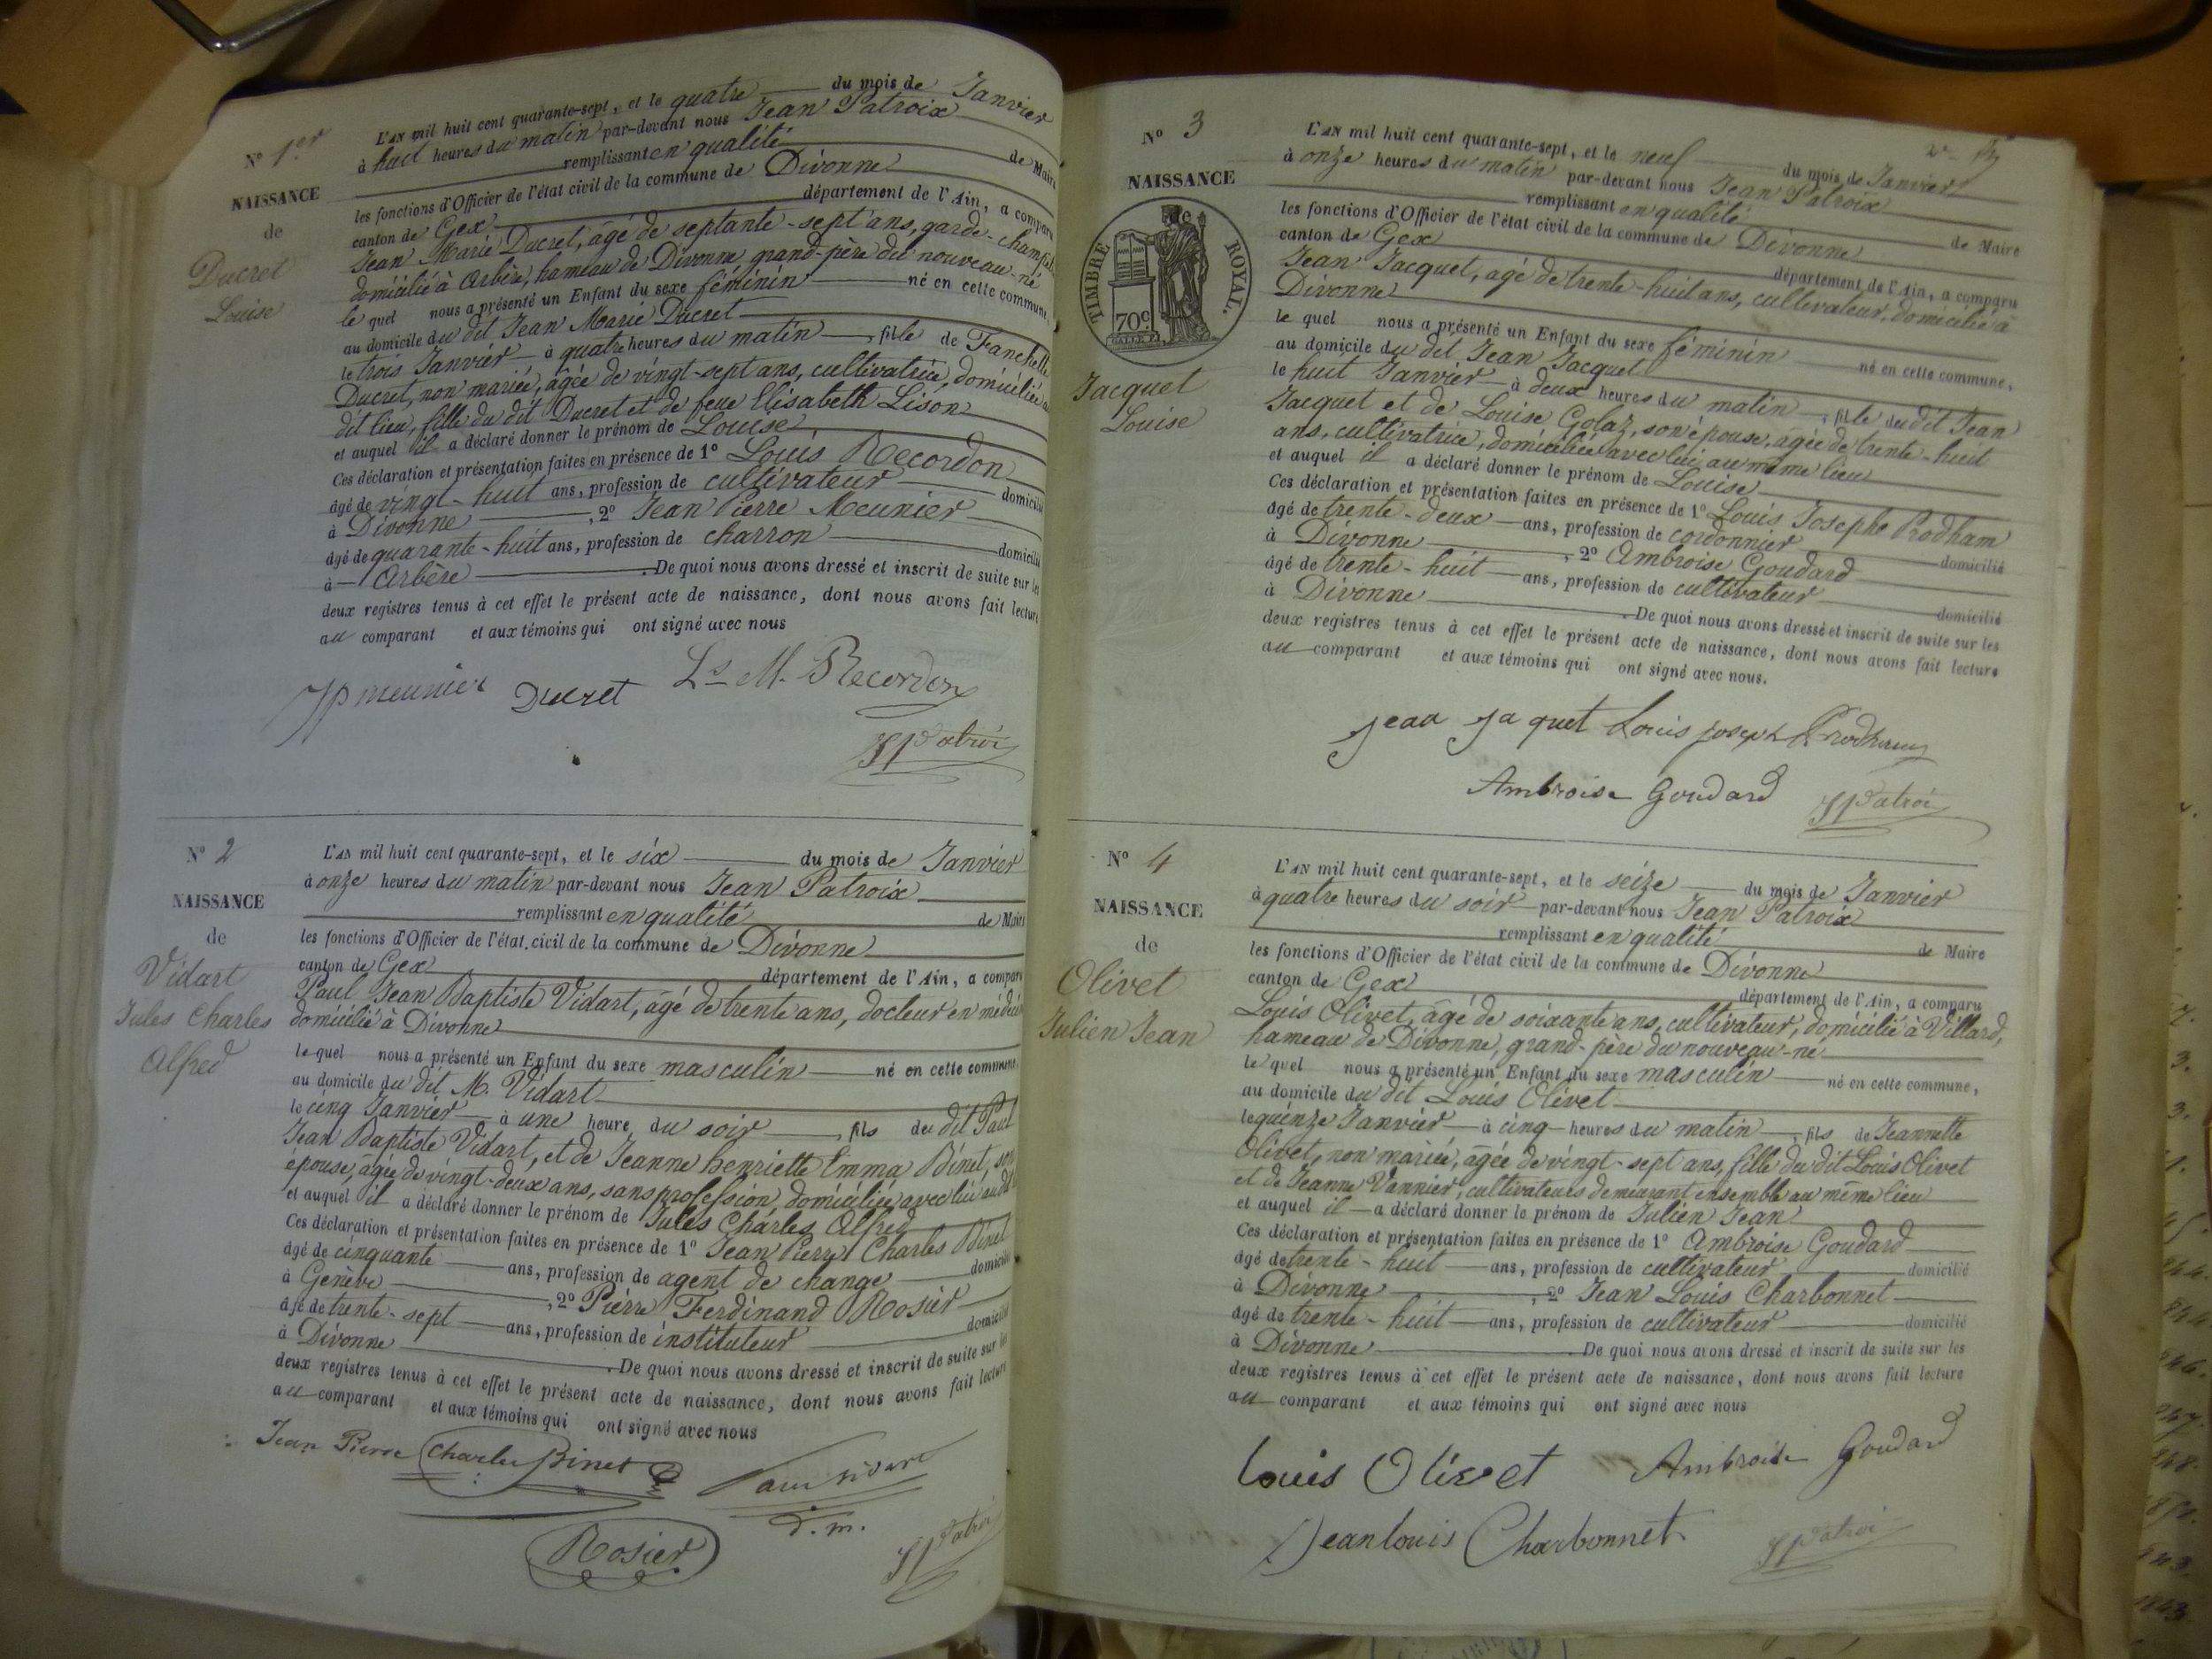 N° 1er
NAISSANCE
de
Ducret
Louise
L'AN mil huit cent quarante-sept, et le quatre du mois de Janvier
à huit heures du matin par-devant nous Jean Patroix
remplissant en qualité de Maire
les fonctions d'Officier de l'état civil de la commune de Divonne
canton de Gex département de l'Ain, a comparu
Jean Marie Ducret, agé de septante-sept ans, garde-champêtre
domicilié à Arbère, hameau de Divonne grand-père du nouveau-né
le quel nous a présenté un Enfant du sexe féminin né en cette commune,
au domicile du dit Jean Marie Ducret
le trois Janvier à quatre heures du matin, fille de Franchette
Ducret, non mariée, âgée de vingt-sept ans, cultivatrice, domiciliée au
dit lieu, fille du dit Ducret et de feue Elisabeth Lison
et auquel il a déclaré donner le prénom de Louise
Ces déclaration et présentation faites en présence de 1° Louis Recordon
âgé de vingt-huit ans, profession de cultivateur domicilié
à Divonne, 2° Jean Pierre Meunier
âgé de quarante-huit ans, profession de charron domicilié
à Arbère. De quoi nous avons dressé et inscrit de suite sur les
deux registres tenus à cet effet le présent acte de naissance, dont nous avons fait lecture
au comparant et aux témoins qui ont signé avec nous
JP meunier Ducret Ls M. Recordon
Patroi
N° 2
NAISSANCE
de
Vidart
Jules Charles
Alfred
L'AN mil huit cent quarante-sept, et le six du mois de Janvier
à onze heures du matin par-devant nous Jean Patroix
remplissant en qualité de Maire
les fonctions d'Officier de l'état civil de la commune de Divonne
canton de Gex département de l'Ain, a comparu
Paul Jean Baptiste Vidart, âgé de trente ans, docteur en médecine
domicilié à Divonne
le quel nous a présenté un Enfant du sexe masculin né en cette commune,
au domicile du dit M. Vidart
le cinq Janvier à une heure du soir, fils du dit Paul
Jean Baptiste Vidart, et de Jeanne henriette Emma Binet, son
épouse, âgée de vingt-deux ans, sans profession, domiciliée avec lui au dit
et auquel il a déclaré donner le prénom de Jules Charles Alfred
Ces déclaration et présentation faites en présence de 1° Jean Pierre Charles Binet
âgé de cinquante ans, profession de agent de change domicilié
à Genève, 2° Pierre Ferdinand Rosier
âgé de trente-sept ans, profession de instituteur domicilié
à Divonne. De quoi nous avons dressé et inscrit de suite sur les
deux registres tenus à cet effet le présent acte de naissance, dont nous avons fait lecture
au comparant et aux témoins qui ont signé avec nous
Jean Pierre Charles Binet Paul Vidart
d. m.
Rosier Patroi
N° 3
NAISSANCE
TIMBRE ROYAL.
70c
Jacquet
Louise
L'AN mil huit cent quarante-sept, et le neuf du mois de Janvier
à onze heures du matin par-devant nous Jean Patroix
remplissant en qualité de Maire
les fonctions d'Officier de l'état civil de la commune de Divonne
canton de Gex département de l'Ain, a comparu
Jean Jacquet, agé de trente-huit ans, cultivateur, domicilié à
Divonne
le quel nous a présenté un Enfant du sexe féminin né en cette commune,
au domicile du dit Jean Jacquet
le huit Janvier à deux heures du matin, fille du dit Jean
Jacquet et de Louise Golaz, son épouse, âgée de trente-huit
ans, cultivatrice, domiciliée avec lui au même lieu
et auquel il a déclaré donner le prénom de Louise
Ces déclaration et présentation faites en présence de 1° Louis Josephe Prodham
âgé de trente-deux ans, profession de cordonnier domicilié
à Divonne, 2° Ambroise Goudard
âgé de trente-huit ans, profession de cultivateur domicilié
à Divonne. De quoi nous avons dressé et inscrit de suite sur les
deux registres tenus à cet effet le présent acte de naissance, dont nous avons fait lecture
au comparant et aux témoins qui ont signé avec nous.
jean jaquet Louis joseph Prodham
Ambroise Goudard Patroi
N° 4
NAISSANCE
de
Olivet
Julien Jean
L'AN mil huit cent quarante-sept, et le seize du mois de Janvier
à quatre heures du soir par-devant nous Jean Patroix
remplissant en qualité de Maire
les fonctions d'Officier de l'état civil de la commune de Divonne
canton de Gex département de l'Ain, a comparu
Louis Olivet, âgé de soixante ans, cultivateur, domicilié à Villard,
hameau de Divonne, grand-père du nouveau-né
le quel nous a présenté un Enfant du sexe masculin né en cette commune,
au domicile du dit Louis Olivet
le quinze Janvier à cinq heures du matin, fils de Jeannette
Olivet, non mariée, âgée de vingt-sept ans, fille du dit Louis Olivet
et de Jeanne Vannier, cultivateurs demeurant ensemble au même lieu
et auquel il a déclaré donner le prénom de Julien Jean
Ces déclaration et présentation faites en présence de 1° Ambroise Goudard
âgé de trente-huit ans, profession de cultivateur domicilié
à Divonne, 2° Jean Louis Charbonnet
âgé de trente-huit ans, profession de cultivateur domicilié
à Divonne. De quoi nous avons dressé et inscrit de suite sur les
deux registres tenus à cet effet le présent acte de naissance, dont nous avons fait lecture
au comparant et aux témoins qui ont signé avec nous
Louis Olivet Ambroise Goudard
Jean louis Charbonnet Patroi